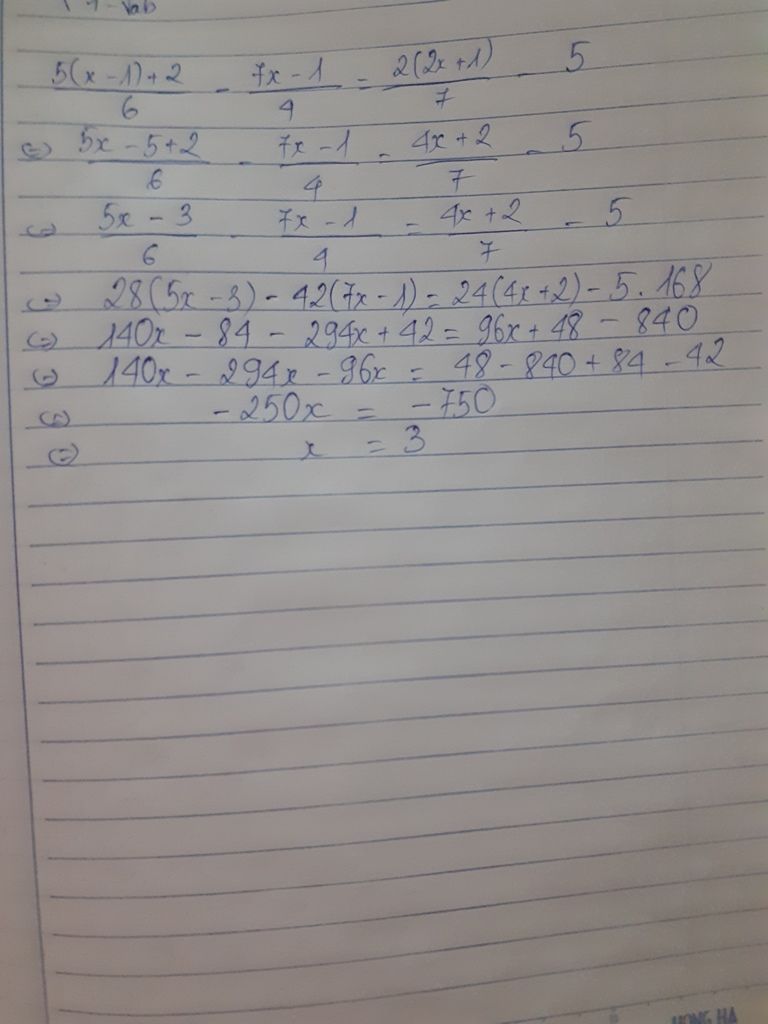 5(x-1)+2/6 - 7x-1/4 = 2(2x+1)/7 - 5
(=) 5x-5+2/6 - 7x-1/4 = 4x+2/7 - 5
(=) 5x-3/6 - 7x-1/4 = 4x+2/7 - 5
(=) 28(5x-3) - 42(7x-1) = 24(4x+2) - 5.168
(=) 140x - 84 - 294x + 42 = 96x + 48 - 840
(=) 140x - 294x - 96x = 48 - 840 + 84 - 42
(=) -250x = -750
(=) x = 3
HONG HA